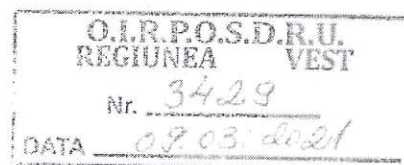 O.I.R.P.O.S.D.R.U.
REGIUNEA VEST
Nr. 3429
DATA 09.03.2021